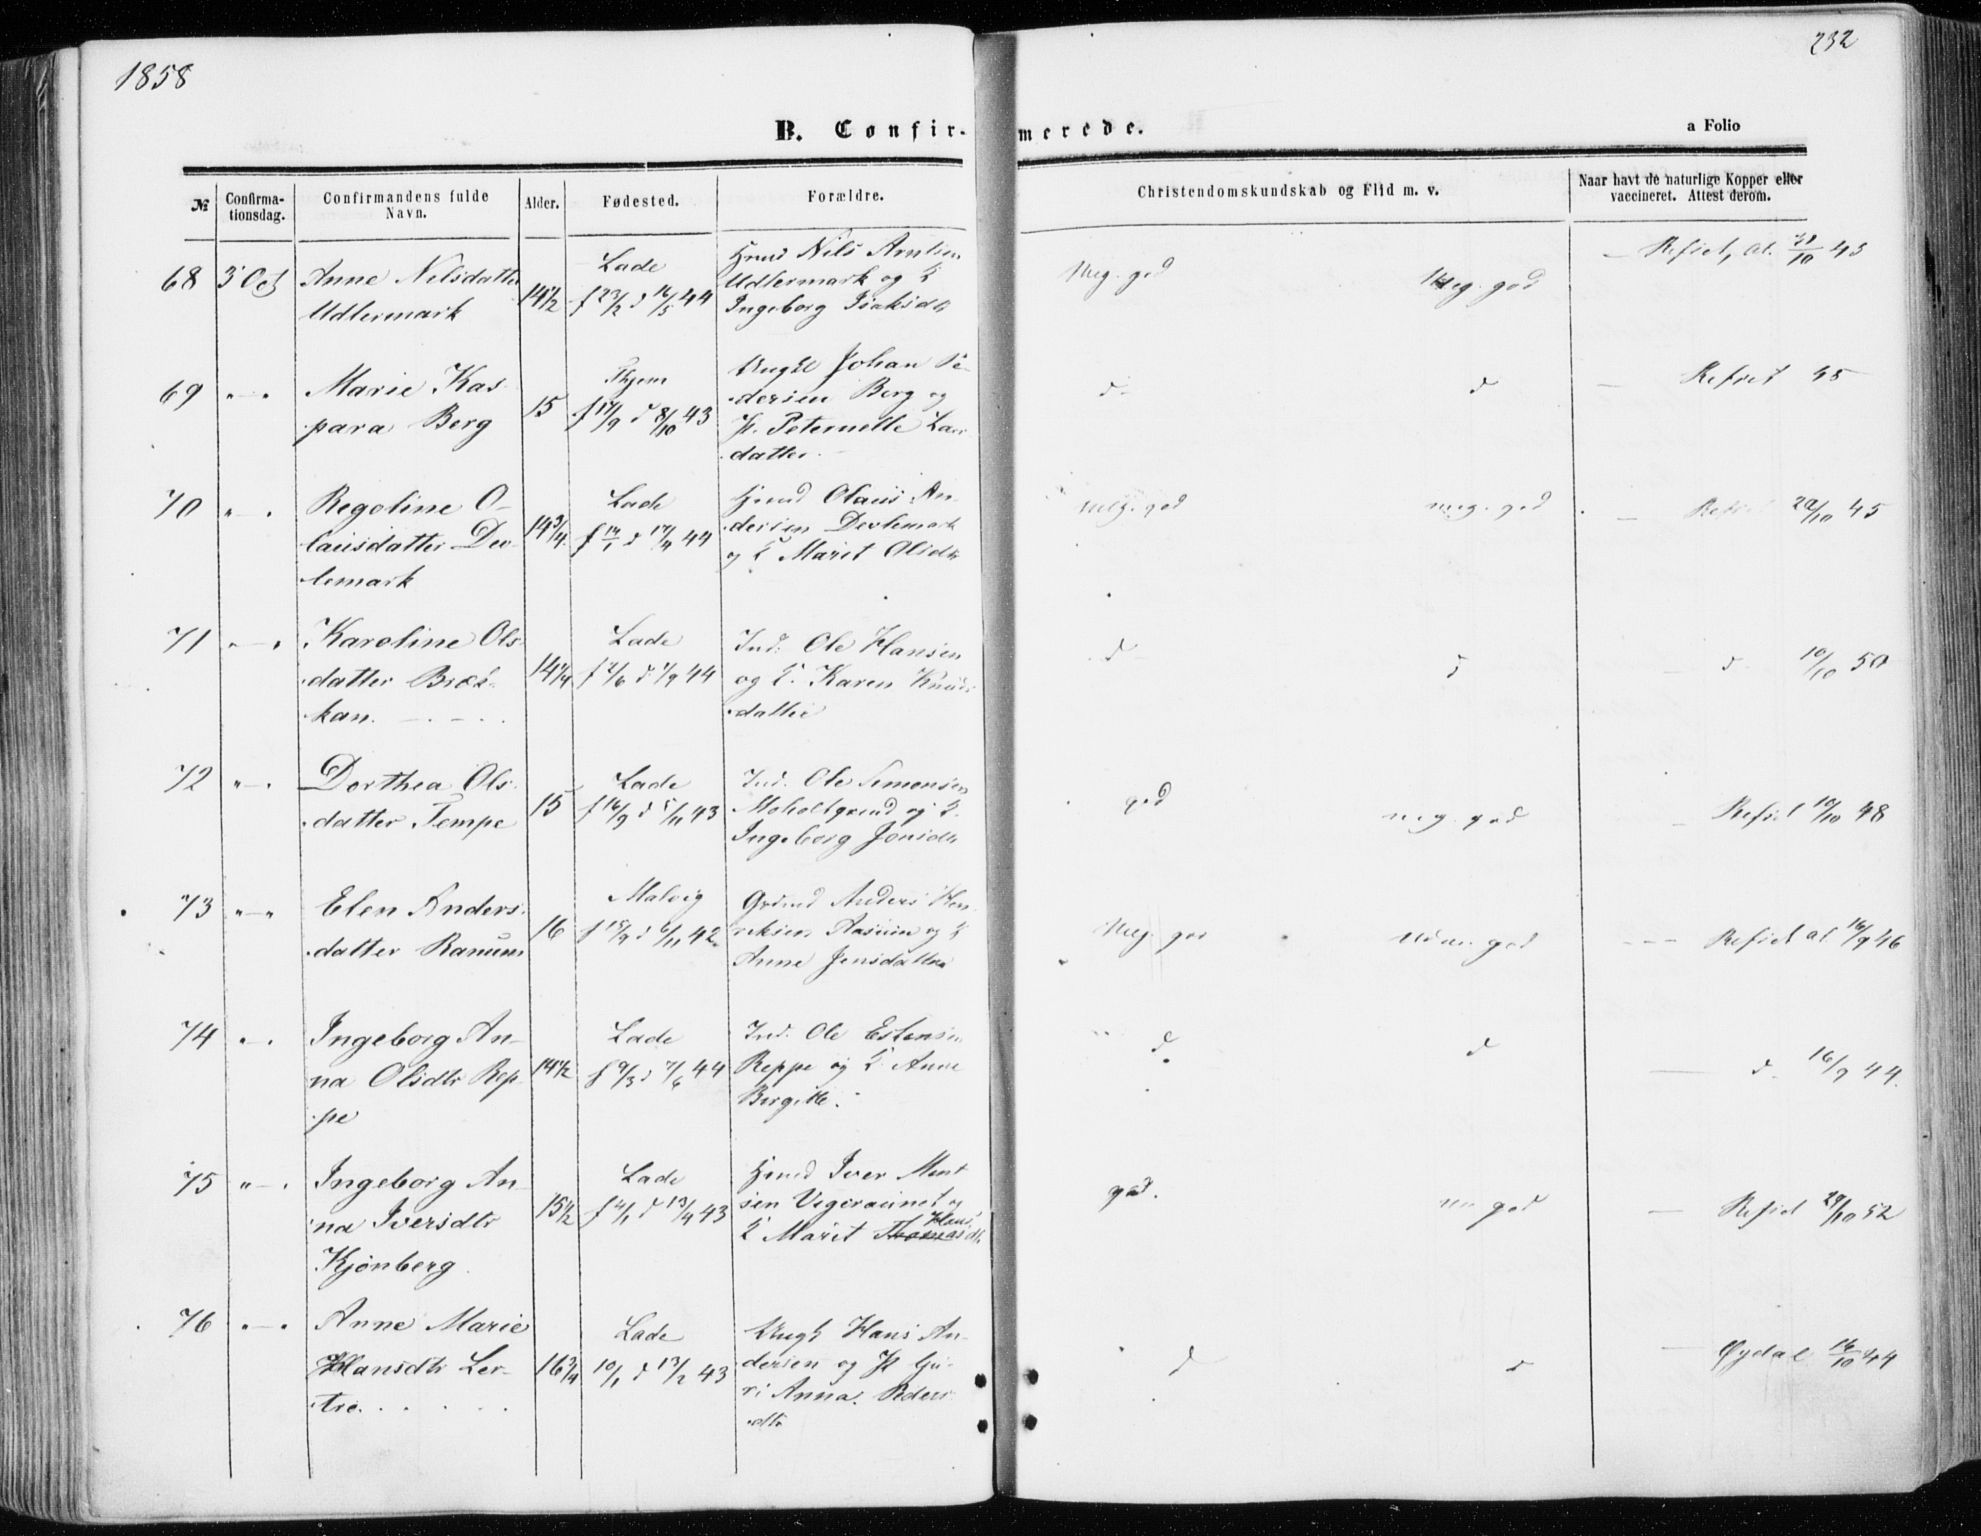 1858
232
B. Confir-
merede.
a Folio
№
Confirma-
tionsdag.
Confirmandens fulde
Navn.
Alder.
Fødested.
Forældre.
Christendomskundskab og Flid m. v.
Naar havt de naturlige Kopper eller
vaccineret. Attest derom.
68 3 Oct Anne Nilsdatter
Udlermark
14½
Lade
Nils Arntsen
Udlermark og
Ingeborg Isaksdtr
Meg. god
Meg. god
43
69 " — " Marie Kas-
para Berg
15
f 17/9 d 8/10 43
Johan Pe-
dersen Berg og
P. Peternelle Lars-
datter
d
d
45
70 " — " Regoline O-
lausdatter Dev-
lemark
14¾
Lade
f 14/1 d 17/4 44
Olaus An-
dersen Devlemark
og Marit Olsdtr
Meg. god
meg. god
45
71 " — " Karoline Ols-
datter
kan
14¼
Lade
Ind. Ole Hansen
og K. Karen Knuds-
datter
d
d
d 10/10 50
72 " — " Dorthea Ols-
datter Tempe
15
Lade
f 16/9 d 5/11 43
Ind. Ole Simonsen
Moholtgrind og K.
Ingeborg Jonsdtr
god
meg. god
10/10 48
73 " — " Elen Anders-
datter Ranum
16
Malvig
f 18/9 d 6/11 42
Anders Hen-
riksen Aasum og K
Anne Jensdatter
Meg. god
god
at 16/9 46
74 " — " Ingeborg An-
na Olsdtr Rep-
pe
14½
Lade
f 9/3 d 7/6 44
Ind. Ole Estensen
Reppe og K. Anne
Birgitte.
d
d
d. 16/9 44.
75 " — " Ingeborg An-
na Iversdtr
Kjønberg
15½
Lade
f 4/1 d 13/4 43
Iver Mont-
sen og
K. Marit Thomasdtr
Hans
god.
god
29/10 52
76 " — " Anne Marie
Hansdtr Ler-
tre.
16¾
Lade
10/1 d 13/2 43
Hans An-
dersen og P. Gu-
ri Anna Peders-
dtr
d
d
Øydal 16/10 44